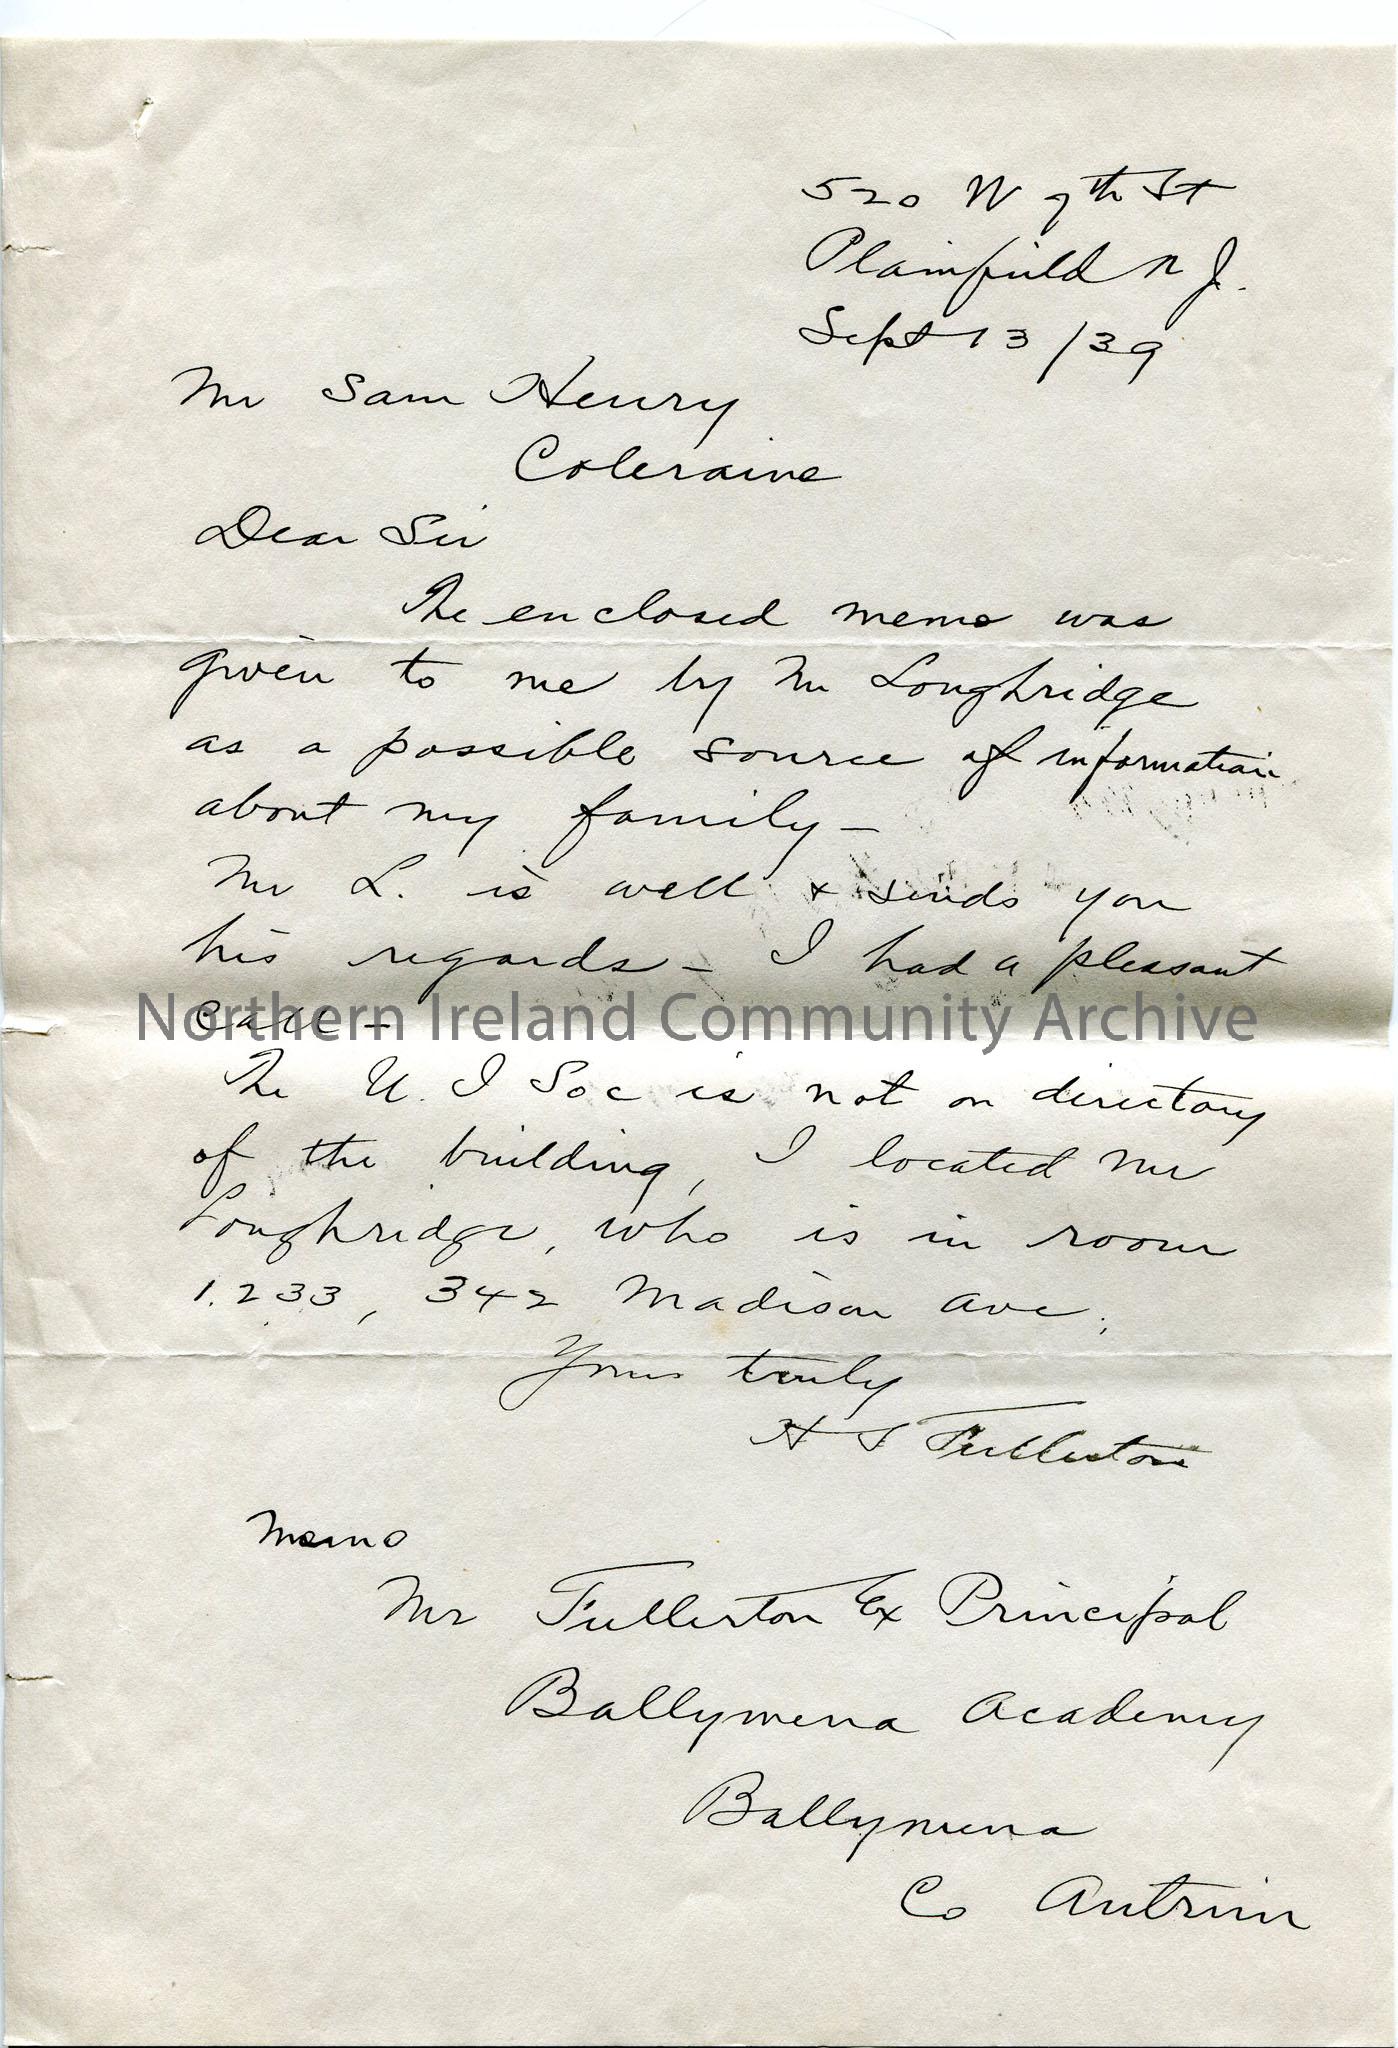 520 W 7th St
Plainfield N J.
Sept 13/39
Mr Sam Henry
Coleraine
Dear Sir
The enclosed memo was
given to me by Mr Loughridge
as a possible source of information
about my family –
Mr L. is well & sends you
his regards – I had a pleasant
call –
Northern Ireland Community Archive
The U. I Soc is not on directory
of the building, I located Mr
Loughridge, who is in room
1233, 342 Madison Ave.
Yours truly
H S Fullerton
Memo
Mr Fullerton Ex Principal
Ballymena Academy
Ballymena
Co Antrim